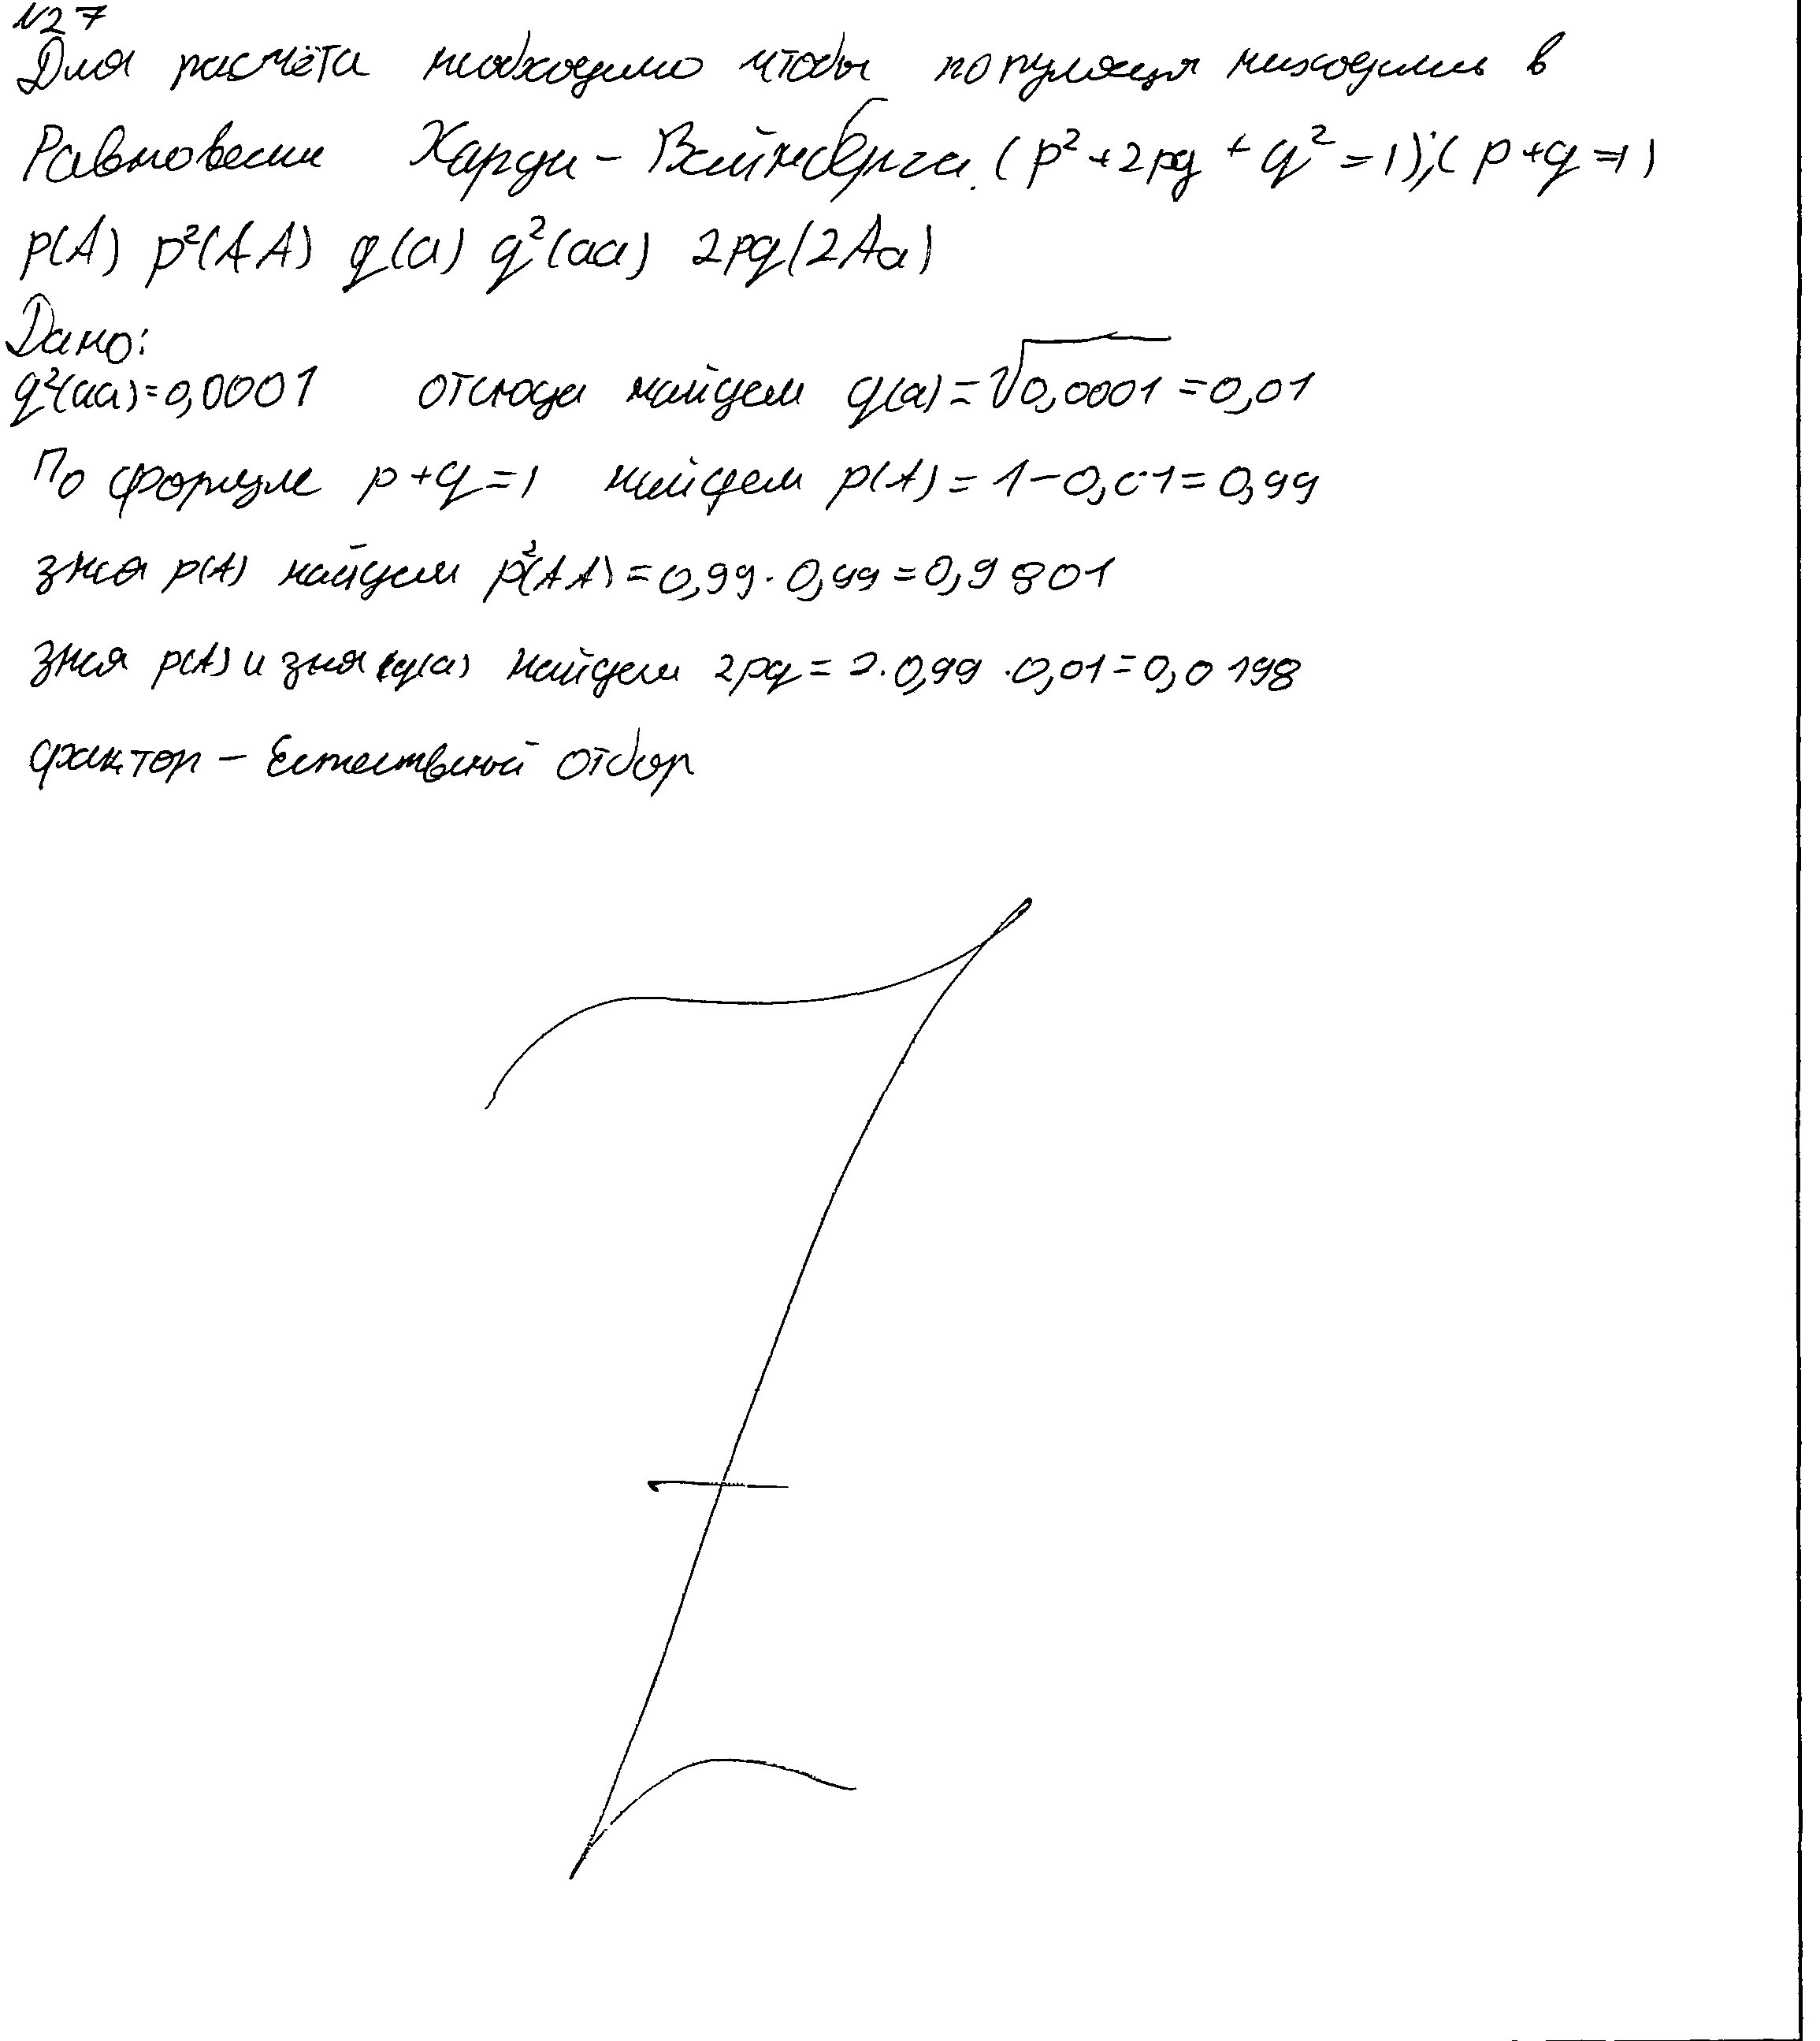 N27
Для расчёта необходимо чтобы популяция находились в
Равновесии Харди - Вайнберга. (p² + 2pq + q² = 1); (p+q=1)
p(A) p²(AA) q(a) q²(aa) 2pq(2Aa)
Дано:
q²(aa)=0,0001 отсюда найдем q(a)=√0,0001=0,01
По формуле p+q=1 найдем p(A)=1-0,01=0,99
зная p(A) найдем p²(AA)=0,99·0,99=0,9801
зная p(A) и зная q(a) найдем 2pq=2·0,99·0,01=0,0198
фактор - Естественый отбор